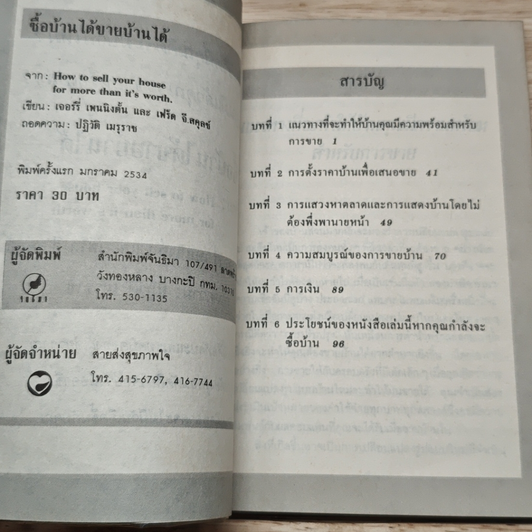 ซื้อบ้านได้ขายบ้านได้
จาก: How to sell your house
for more than it's worth.
เขียน: เจอร์รี่ เพนนิงตัน และ เฟร็ด จี.สคุลซ์
ถอดความ: ปฏิวัติ เมรุราช
พิมพ์ครั้งแรก มกราคม 2534
ราคา 30 บาท
ผู้จัดพิมพ์ สำนักพิมพ์จันธิมา 107/491
วังทองหลาง บางกะปิ กทม.
โทร. 530-1135
ผู้จัดจำหน่าย สายส่งสุขภาพใจ
โทร. 415-6797, 416-7744
สารบัญ
บทที่ 1 แนวทางที่จะทำให้บ้านคุณมีความพร้อมสำหรับ
การขาย 1
บทที่ 2 การตั้งราคาบ้านเพื่อเสนอขาย 41
บทที่ 3 การแสวงหาตลาดและการแสดงบ้านโดยไม่
ต้องพึ่งพานายหน้า 49
บทที่ 4 ความสมบูรณ์ของการขายบ้าน 70
บทที่ 5 การเงิน 89
บทที่ 6 ประโยชน์ของหนังสือเล่มนี้หากคุณกำลังจะ
ซื้อบ้าน 96